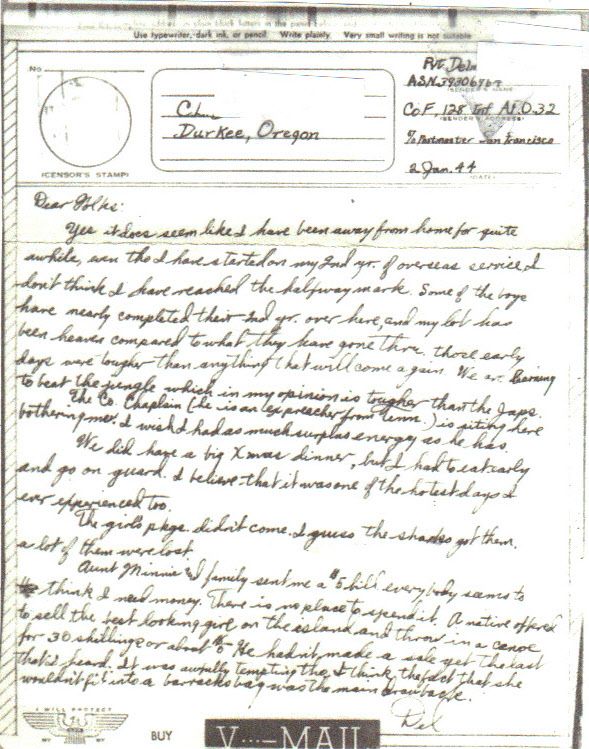 Use typewriter, dark ink, or pencil. Write plainly. Very small writing is not suitable
No.
(CENSOR'S STAMP)
Durkee, Oregon
Pvt. Del
ASN 3930
(SENDER'S NAME)
Co F, 128 Inf. A.P.O. 32
(SENDER'S ADDRESS)
c/o Postmaster San Francisco
2 Jan. 44
(DATE)
Dear Folks:
Yes it does seem like I have been away from home for quite
awhile, even tho I have started on my 2nd yr. of overseas service, I
don't think I have reached the halfway mark. Some of the boys
have nearly completed their 2nd yr. over here, and my lot has
been heaven compared to what they have gone thru. those early
days were tougher than anything that will come again. We are learning
to beat the jungle which in my opinion is tougher than the Japs.
The Co. Chaplain (he is an ex preacher from Tenn.) is siting here
bothering me. I wish I had as much surplus energy as he has.
We did have a big Xmas dinner, but I had to eat early
and go on guard. I believe that it was one of the hotest days I
ever experienced too.
The girl's pkge. didn't come. I guess the sharks got them,
a lot of them were lost.
Aunt Minnie & family sent me a $5 bill everybody seems to
think I need money. There is no place to spend it. A native offered
to sell the best looking girl on the island and throw in a canoe
for 30 shillings or about $5 He hadn't made a sale yet the last
that I heard. It was awfully tempting tho, I think the fact that she
wouldn't fit into a barracks bag was the main drawback.
Del
I WILL PROTECT
BUY
V···—MAIL